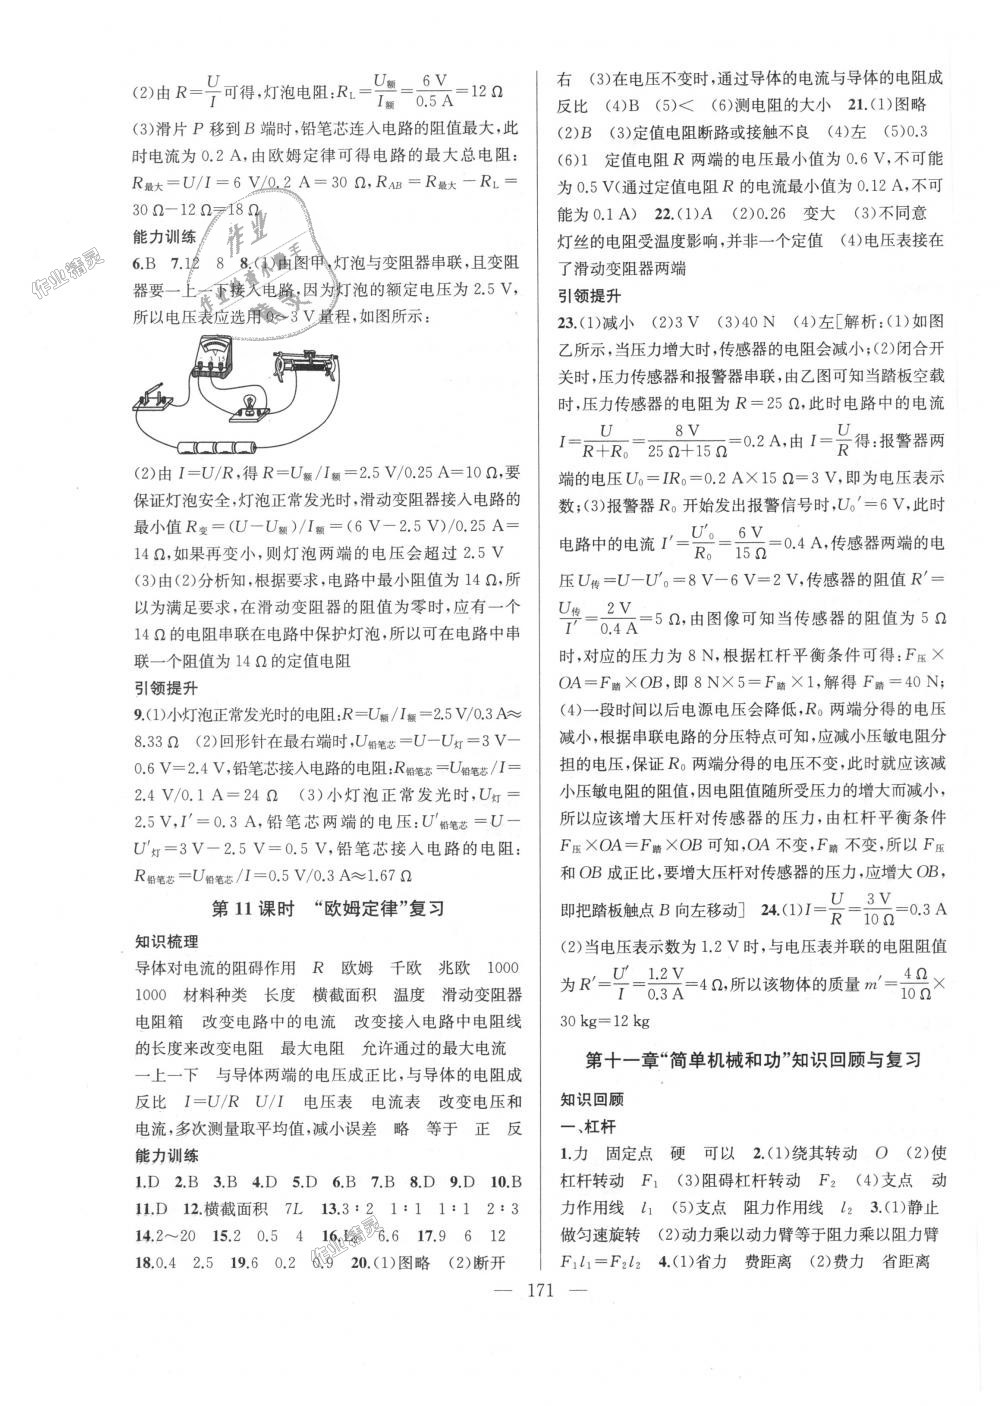 (2)由 R=U/I可得,灯泡电阻:R_L=U额/I额=6 V/0.5 A=12 Ω
(3)滑片 P 移到 B 端时,铅笔芯连入电路的阻值最大,此
时电流为 0.2 A,由欧姆定律可得电路的最大总电阻:
R最大=U/I=6 V/0.2 A=30 Ω,R_AB=R最大-R_L=
30 Ω-12 Ω=18 Ω
能力训练
6.B 7.12 8 8.(1)由图甲,灯泡与变阻器串联,且变阻
器要一上一下接入电路,因为灯泡的额定电压为 2.5 V,
所以电压表应选用 0~3 V 量程,如图所示:
(2)由 I=U/R,得 R=U额/I额=2.5 V/0.25 A=10 Ω,要
保证灯泡安全,灯泡正常发光时,滑动变阻器接入电路的
最小值 R变=(U-U额)/I额=(6 V-2.5 V)/0.25 A=
14 Ω,如果再变小,则灯泡两端的电压会超过 2.5 V
(3)由(2)分析知,根据要求,电路中最小阻值为 14 Ω,所
以为满足要求,在滑动变阻器的阻值为零时,应有一个
14 Ω 的电阻串联在电路中保护灯泡,所以可在电路中串
联一个阻值为 14 Ω 的定值电阻
引领提升
9.(1)小灯泡正常发光时的电阻:R=U额/I额=2.5 V/0.3 A≈
8.33 Ω (2)回形针在最右端时,U铅笔芯=U-U灯=3 V-
0.6 V=2.4 V,铅笔芯接入电路的电阻:R铅笔芯=U铅笔芯/I=
2.4 V/0.1 A=24 Ω (3)小灯泡正常发光时,U灯=
2.5 V,I′=0.3 A,铅笔芯两端的电压:U′铅笔芯=U-
U′灯=3 V-2.5 V=0.5 V,铅笔芯接入电路的电阻:
R铅笔芯=U铅笔芯/I=0.5 V/0.3 A≈1.67 Ω
第 11 课时 “欧姆定律”复习
知识梳理
导体对电流的阻碍作用 R 欧姆 千欧 兆欧 1000
1000 材料种类 长度 横截面积 温度 滑动变阻器
电阻箱 改变电路中的电流 改变接入电路中电阻线
的长度来改变电阻 最大电阻 允许通过的最大电流
一上一下 与导体两端的电压成正比,与导体的电阻成
反比 I=U/R U/I 电压表 电流表 改变电压和
电流,多次测量取平均值,减小误差 略 等于 正 反
能力训练
1.D 2.B 3.B 4.D 5.D 6.B 7.B 8.B 9.D 10.B
11.D 12.横截面积 7L 13.3∶2 1∶1 1∶1 2∶3
14.2~20 15.2 0.5 4 16.L₂ 6.6 17.9 6 12
18.0.4 2.5 19.6 0.2 0.9 20.(1)图略 (2)断开
右 (3)在电压不变时,通过导体的电流与导体的电阻成
反比 (4)B (5)< (6)测电阻的大小 21.(1)图略
(2)B (3)定值电阻断路或接触不良 (4)左 (5)0.3
(6)1 定值电阻 R 两端的电压最小值为 0.6 V,不可能
为 0.5 V(通过定值电阻 R 的电流最小值为 0.12 A,不可
能为 0.1 A) 22.(1)A (2)0.26 变大 (3)不同意
灯丝的电阻受温度影响,并非一个定值 (4)电压表接在
了滑动变阻器两端
引领提升
23.(1)减小 (2)3 V (3)40 N (4)左[解析:(1)如图
乙所示,当压力增大时,传感器的电阻会减小;(2)闭合开
关时,压力传感器和报警器串联,由乙图可知当踏板空载
时,压力传感器的电阻为 R=25 Ω,此时电路中的电流
I=U/(R+R₀)=8 V/(25 Ω+15 Ω)=0.2 A,由 I=U/R得:报警器两
端的电压 U₀=IR₀=0.2 A×15 Ω=3 V,即为电压表示
数;(3)报警器 R₀ 开始发出报警信号时,U₀′=6 V,此时
电路中的电流 I′=U′₀/R₀=6 V/15 Ω=0.4 A,传感器两端的电
压 U传=U-U′₀=8 V-6 V=2 V,传感器的阻值 R′=
U传/I′=2 V/0.4 A=5 Ω,由图像可知当传感器的阻值为 5 Ω
时,对应的压力为 8 N,根据杠杆平衡条件可得:F压×
OA=F踏×OB,即 8 N×5=F踏×1,解得 F踏=40 N;
(4)一段时间以后电源电压会降低,R₀ 两端分得的电压
减小,根据串联电路的分压特点可知,应减小压敏电阻分
担的电压,保证 R₀ 两端分得的电压不变,此时就应该减
小压敏电阻的阻值,因电阻值随所受压力的增大而减小,
所以应该增大压杆对传感器的压力,由杠杆平衡条件
F压×OA=F踏×OB 可知,OA 不变,F踏 不变,所以 F压
和 OB 成正比,要增大压杆对传感器的压力,应增大 OB,
即把踏板触点 B 向左移动] 24.(1)I=U/R=3 V/10 Ω=0.3 A
(2)当电压表示数为 1.2 V 时,与电压表并联的电阻阻值
为 R′=U′/I=1.2 V/0.3 A=4 Ω,所以该物体的质量 m′=4 Ω/10 Ω×
30 kg=12 kg
第十一章“简单机械和功”知识回顾与复习
知识回顾
一、杠杆
1.力 固定点 硬 可以 2.(1)绕其转动 O (2)使
杠杆转动 F₁ (3)阻碍杠杆转动 F₂ (4)支点 动
力作用线 l₁ (5)支点 阻力作用线 l₂ 3.(1)静止
做匀速旋转 (2)动力乘以动力臂等于阻力乘以阻力臂
F₁l₁=F₂l₂ 4.(1)省力 费距离 (2)费力 省距离
— 171 —
作业精灵
作业精灵